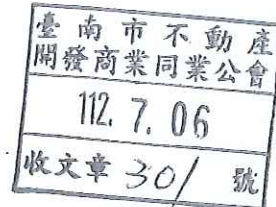 臺南市不動產
開發商業同業公會
112. 7. 06
收文章 301 號